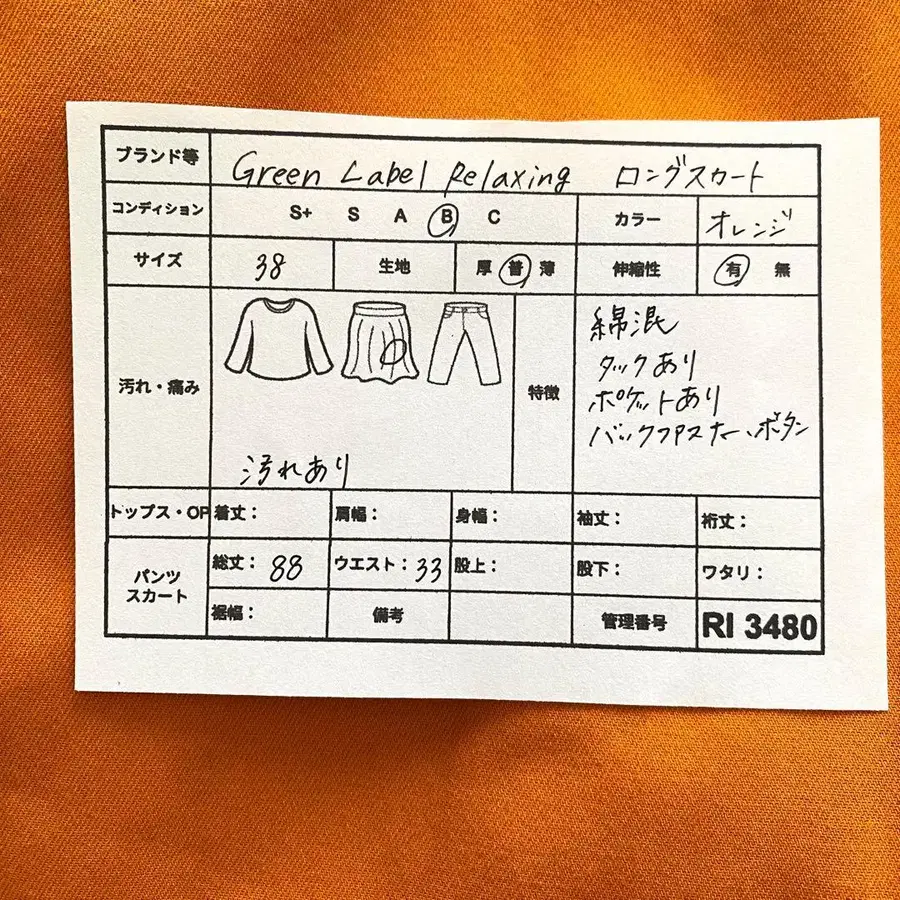 ブランド等 Green Label Relaxing ロングスカート
コンディション S+ S A B C カラー オレンジ
サイズ 38 生地 厚 普 薄 伸縮性 有 無
汚れ・痛み 汚れあり 特徴
綿混
タックあり
ポケットあり
バックファスナー、ボタン
トップス・OP 着丈： 肩幅： 身幅： 袖丈： 裄丈：
パンツ
スカート
総丈：88 ウエスト：33 股上： 股下： ワタリ：
裾幅： 備考 管理番号 RI 3480